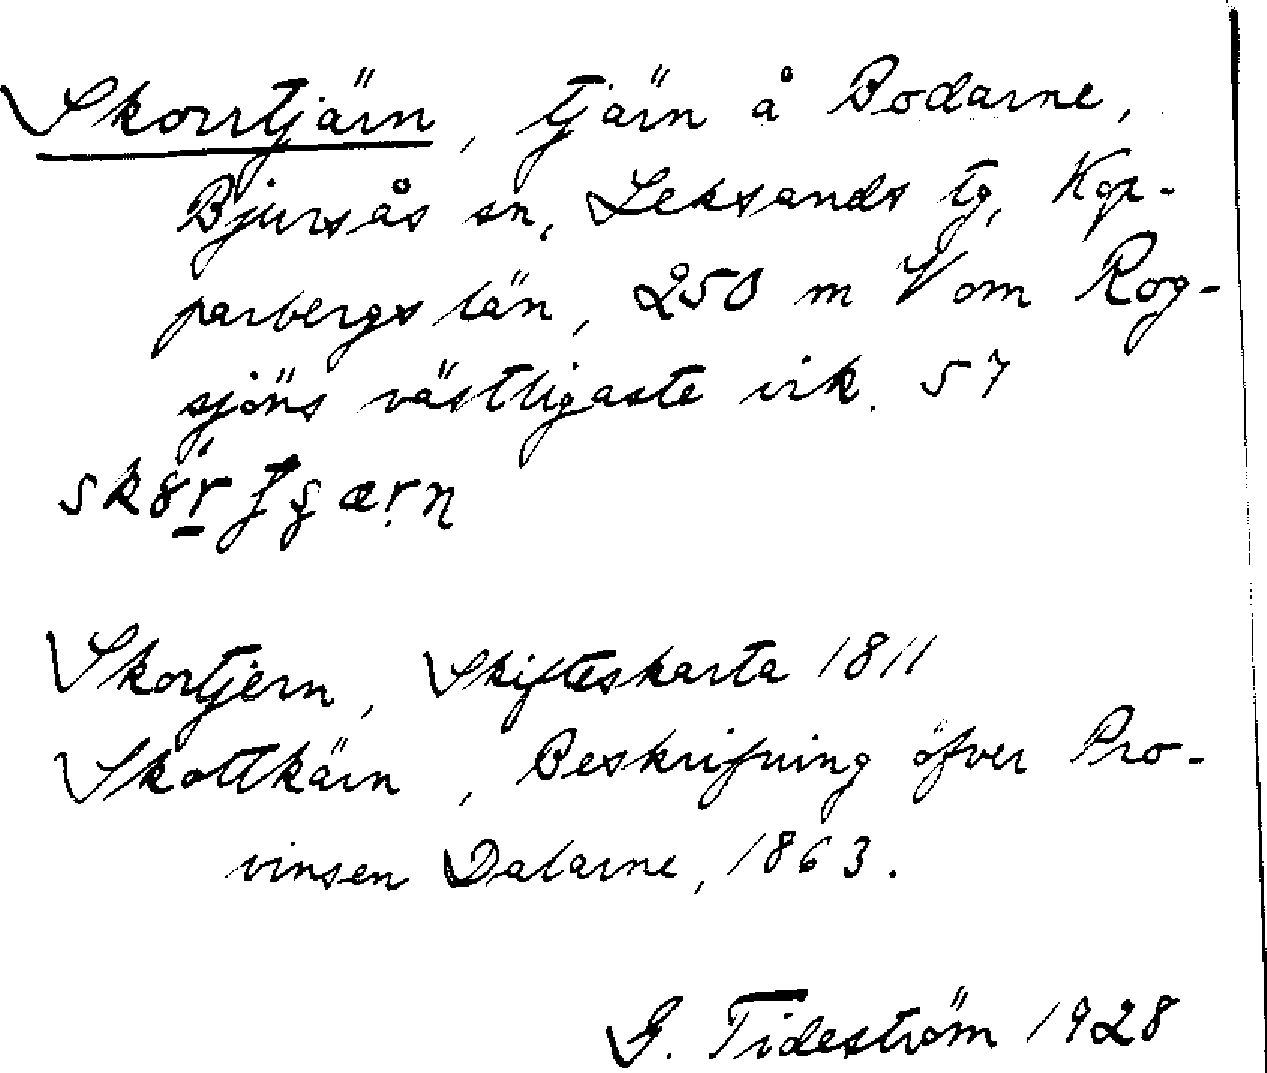 Skorrtjärn, tjärn å Bodarne,
Bjursås sn, Leksands tg, Kop-
parbergs län, 250 m V om Rog-
sjöns västligaste vik. 57
Skortjern, Skifteskarta 1811
Skottkärn, Beskrifning öfver Pro-
vinsen Dalarne, 1863.
G. Tideström 1928